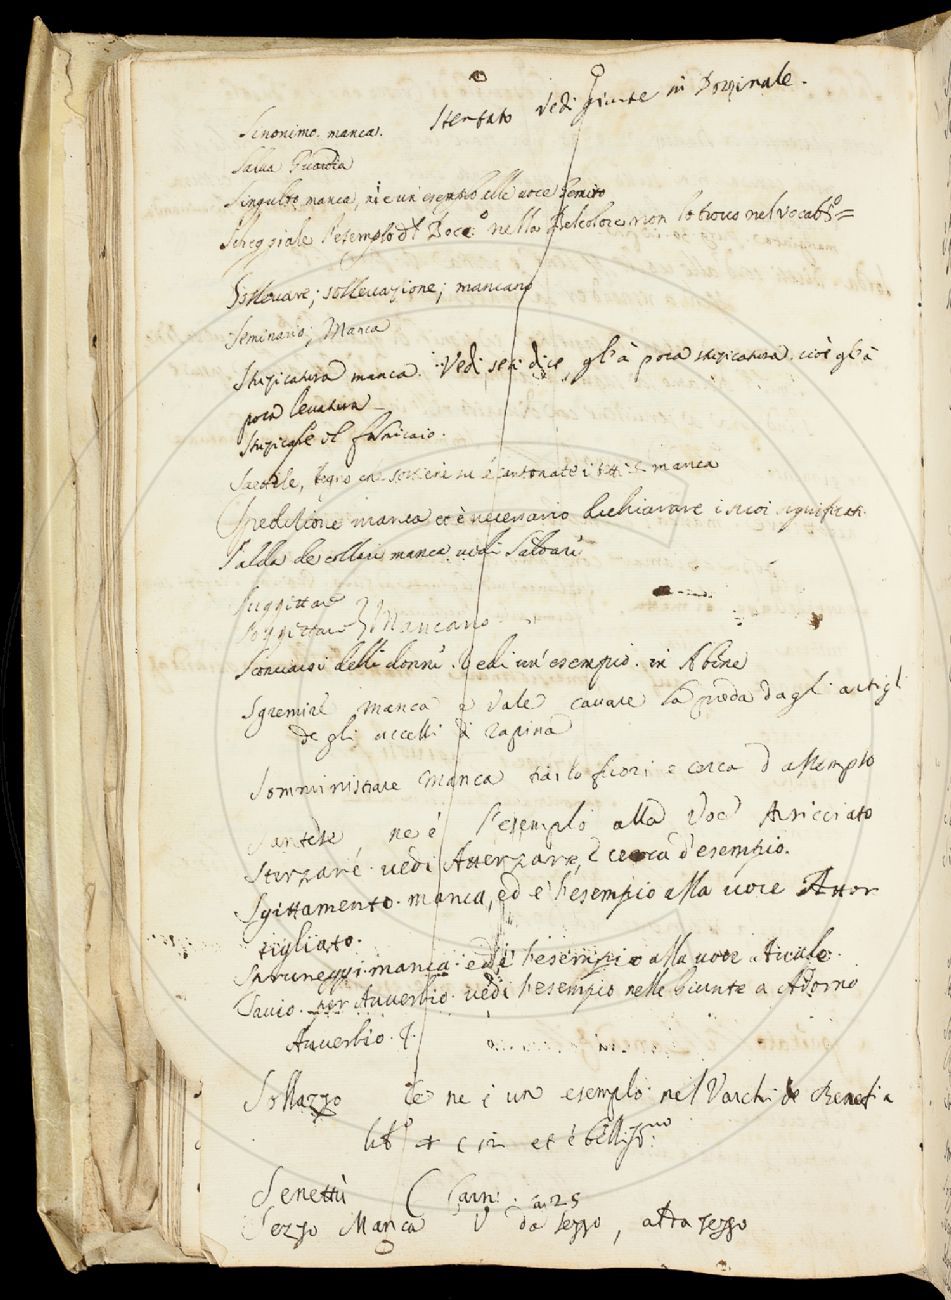 Stentato Vedi Giunte in Dozzinale.
Sinonimo. manca.
Salva Guardia
Singulto manca, ne è un esempio alla voce Gemito
Scheggiale l'esempio del Bocc.º nella Belcolore non lo trovo nel vocabº=
Sollevare; sollevazione; mancano
Seminario; Manca
Stuzicatura manca. Vedi se si dice, gl'à poca stuzicatura cioè gl'à
poca levatura
Stuzicare il formicaio.
Saettile, legno che sostiene su i cantonati i tetti manca
Spedizione manca et è necessario dichiarare i suoi significati
Salda de collari manca vedi Saldare
Suggettare
Soggettare } Mancano
Sconciarsi delle donne. Vedi un' esempio. in Abine
Sgremire manca e vale cavare la preda dagli artigli
degli uccelli di rapina
Somministrare manca tirilo fuori e cerca d assempio
Sartore ne è l'esempio alla Voce Arricciato
Sterzare. vedi Atterzare, e cerca d'esempio.
Sgittamento. manca, ed e' l'esempio alla voce Attor
tigliato.
Spruneggi. manca. ed e' l'esempio alla voce Aticulo.
Savio. per Avverbio. vedi l'esempio nelle Giunte a Adorno
Avverbio. §.
Sollazzo Ve ne è un esempio nel Varchi de Benefi a
libº 4 c et è bellissmo.
Senettù (Carn: a 25
Sezzo Manca V da sezzo, al da sezzo